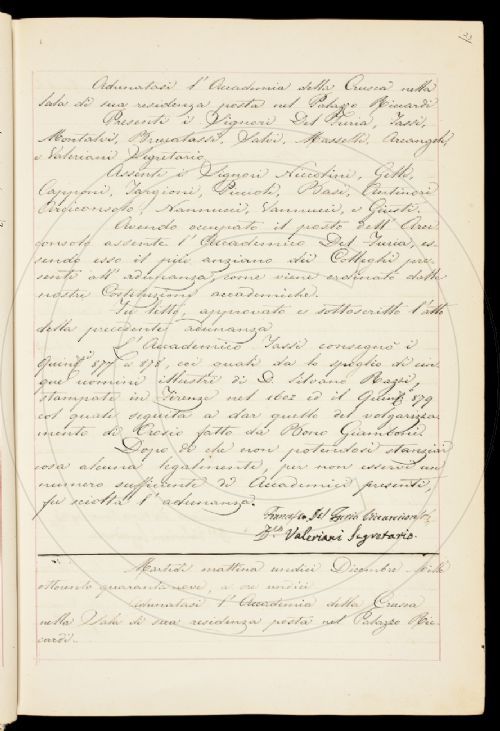 Adunatasi l'Accademia della Crusca nella
Sala di sua residenza posta nel Palazzo Riccardi
Presenti i Signori Del Furia, Tassi,
Montalvi, Brucalassi, Salvi, Masselli, Arcangeli,
e Valeriani Segretario
Assenti i Signori Niccolini, Gelli,
Capponi, Targioni, Puccioti, Basi, Antinori
Arciconsolo, Nannucci, Vannucci, e Giusti.
Avendo occupato il posto dell'Arci-
consolo assente l'Accademico Del Furia, es-
sendo esso il più anziano dei Colleghi pre-
senti all'adunanza, come viene ordinato dalle
nostre Costituzioni accademiche.
Fu letto, approvato e sottoscritto l'atto
della precedente adunanza
L'Accademico Tassi consegnò i
Quint.i 877 e 878, coi quali dà lo spoglio di cin-
que uomini illustri di D. Silvano Razzi,
stampate in Firenze nel 1602 ed il Quint.o 879
col quale seguita a dar quello del volgarizza-
mento di Orosio fatto da Bono Giamboni.
Dopo di che non potendosi stanziar
cosa alcuna legalmente, per non esservi un
numero sufficiente di Accademici presenti,
fu sciolta l'adunanza.
Francesco Del Furia
D.co Valeriani Segretario.
Martedì mattina undici Dicembre Mille
ottocento quarantanove, a ore undici
Adunatasi l'Accademia della Crusca
nella Sala di sua residenza posta nel Palazzo Ric-
cardi.